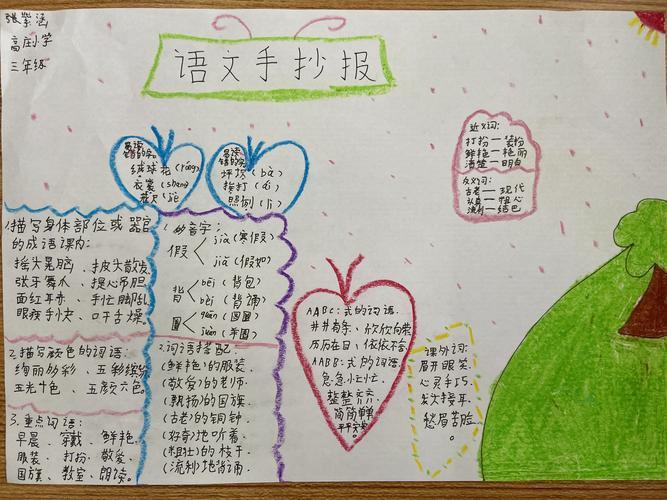 张紫涵
高庄小学
三年练
语文手抄报
易读错的字
绒球花(róng)
衣裳(shang)
坪坝(bà)
照例(lì)
近义词:
打扮—装扮
鲜艳—艳丽
清楚—明白
反义词:
古老—现代
认真—粗心
流利—结巴
1.描写身体部位或器官
的成语课内:
摇头晃脑、披头散发
张牙舞爪、提心吊胆
面红耳赤、手忙脚乱
眼疾手快、口干舌燥。
2.描写颜色的词语:
绚丽多彩、五彩缤纷
五光十色、五颜六色。
3.重点词语:
早晨、穿戴、鲜艳
服装、打扮、敬爱、
国旗、教室、朗读。
1.多音字:
假 jià(寒假)
jiǎ(假如)
背 bēi(背包)
bèi(背诵)
圈 quān(圆圈)
juàn(羊圈)
2.词语搭配
(鲜艳)的服装
(敬爱)的老师
(飘扬)的国旗
(古老)的铜钟
(好奇)地听着
(粗壮)的枝干
(流利)地背诵
AABC:式的词语
井井有条、欣欣向荣
历历在目、依依不舍
AABB:式的词语
急急忙忙
整整齐齐
简简单单
平平安安
课外词:
眉开眼笑
心灵手巧
愁眉苦脸。